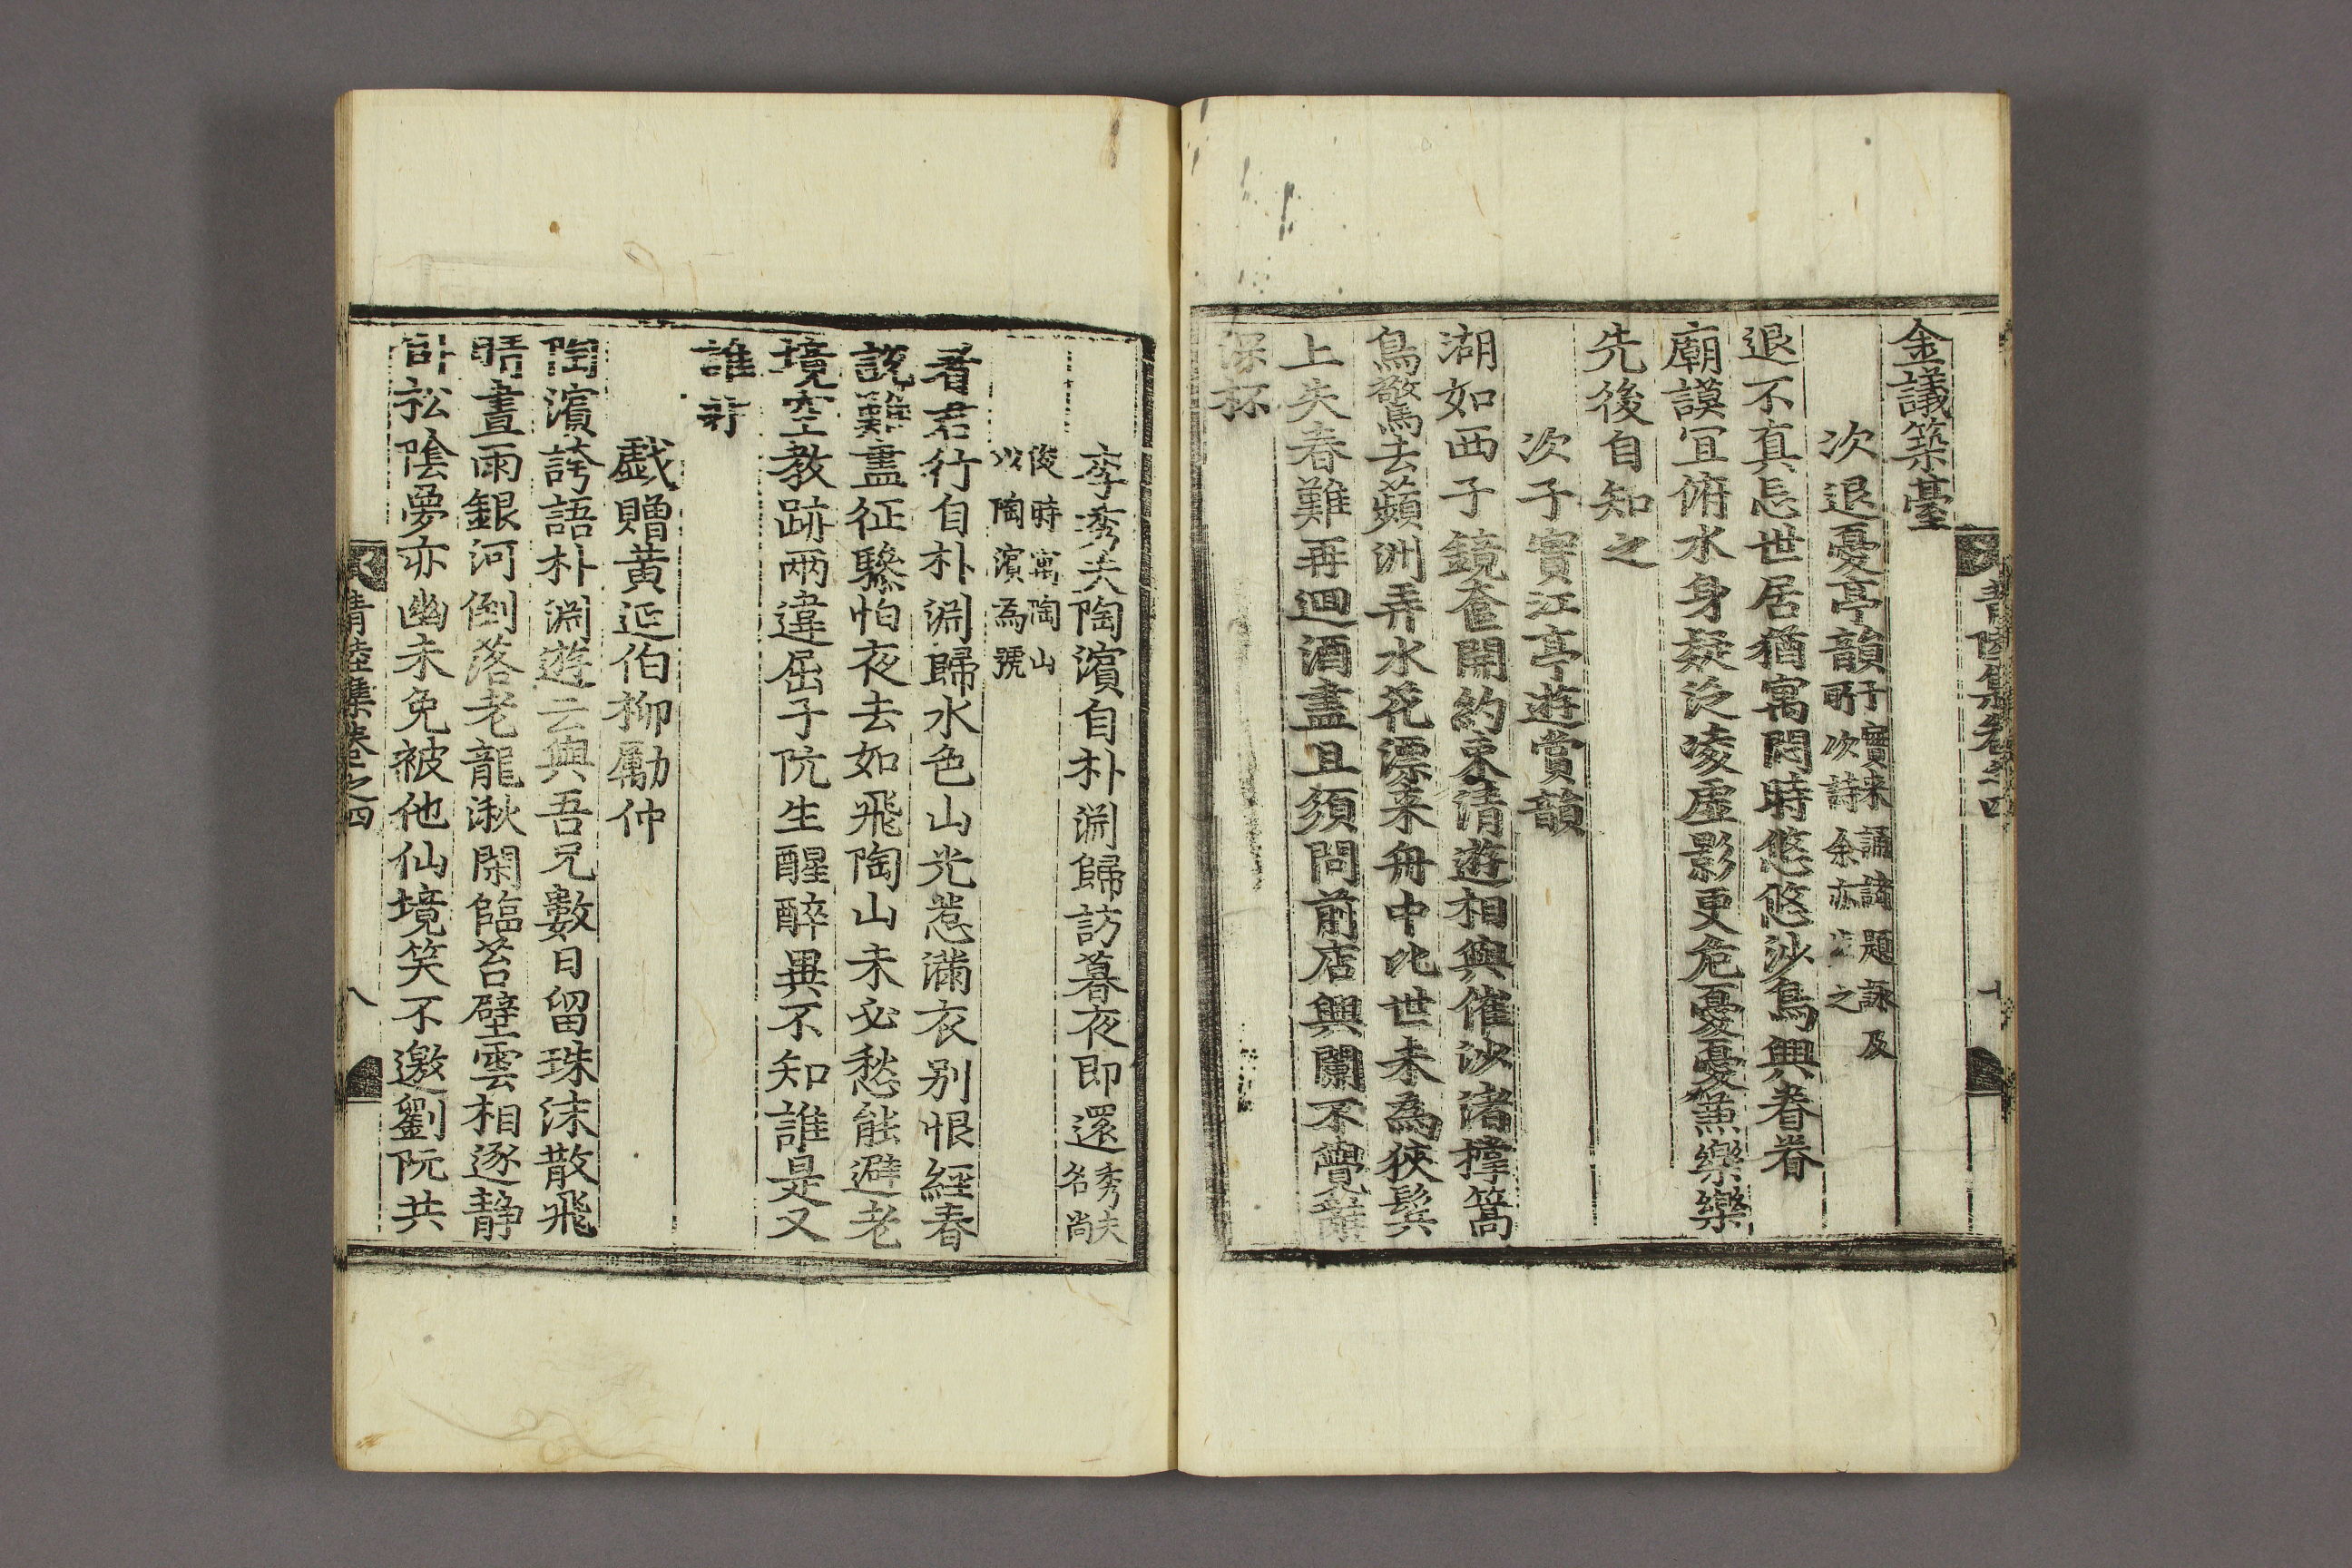 金議築臺
次退憂亭韻 子實来誦諸題詠及
所次詩余亦 之
退不真忘世居猶寓閔時悠悠沙鳥興眷眷
廟謨宜俯水身疑泛凌虛影更危憂憂蕙樂樂
先後自知之
次子實江亭遊賞韻
湖如西子鏡奩開約束清遊相與催沙渚撑篙
鳥驚去蘋洲弄水花漂来舟中此世未為狹鬓
上失春難再迴酒盡且須問前店興闌不覺
深杯
李秀夫陶濵自朴淵歸訪暮夜即還 秀夫
名尚
俊時寓陶山
以陶濵為號
看君行自朴淵歸水色山光惹滿衣别恨經春
説難盡征驂怕夜去如飛陶山未必愁能避老
境空教跡兩違屈子阮生醒醉異不知誰是又
誰非
戯贈黄延伯柳勵仲
陶濵誇語朴淵遊云與吾兄數日留珠沫散飛
晴晝雨銀河倒落老龍湫閑臨苔壁雲相逐静
卧松陰夢亦幽未免被他仙境笑不邀劉阮共
青陸集卷之四
八